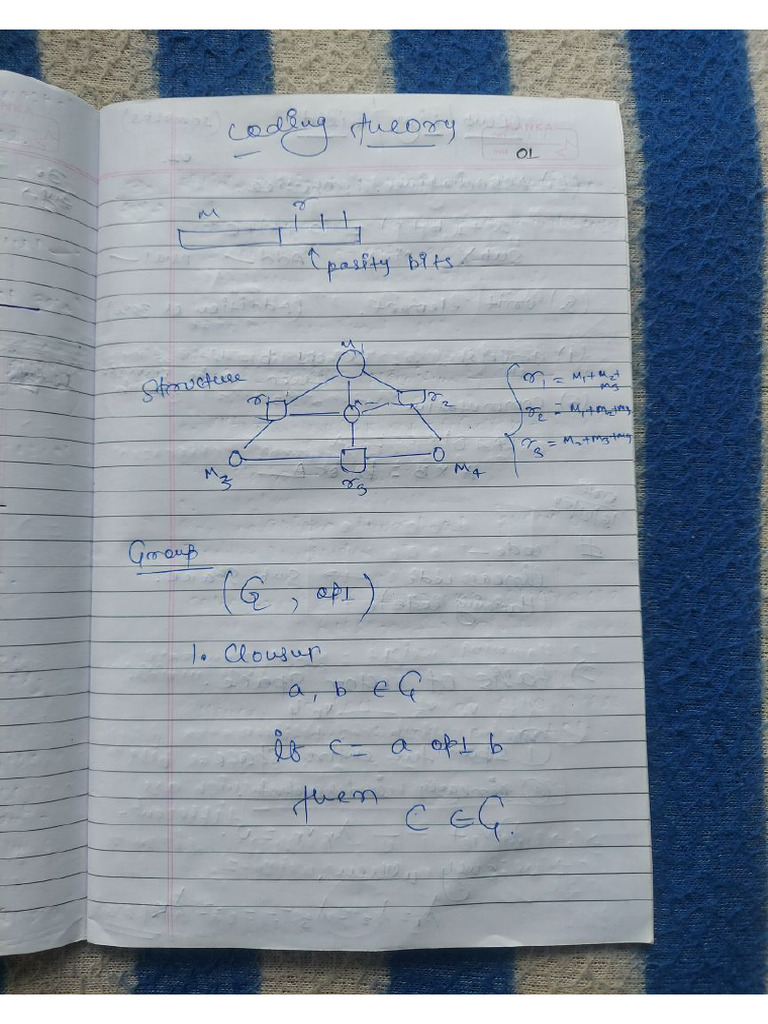 Coding theory
01
M r
parity bits
Structure
M1
r1 r2
M3 r3 M4
r1 = M1+M2+
M3
r2 = M1+M2+M3
r3 = M2+M3+M4
Group
(G, op1)
1. Clousur
a, b ∈ G
if c = a op1 b
then
C ∈ G.